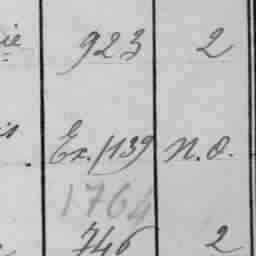 ie 923 2
Ex. 1139 n.o.
1764
746 2